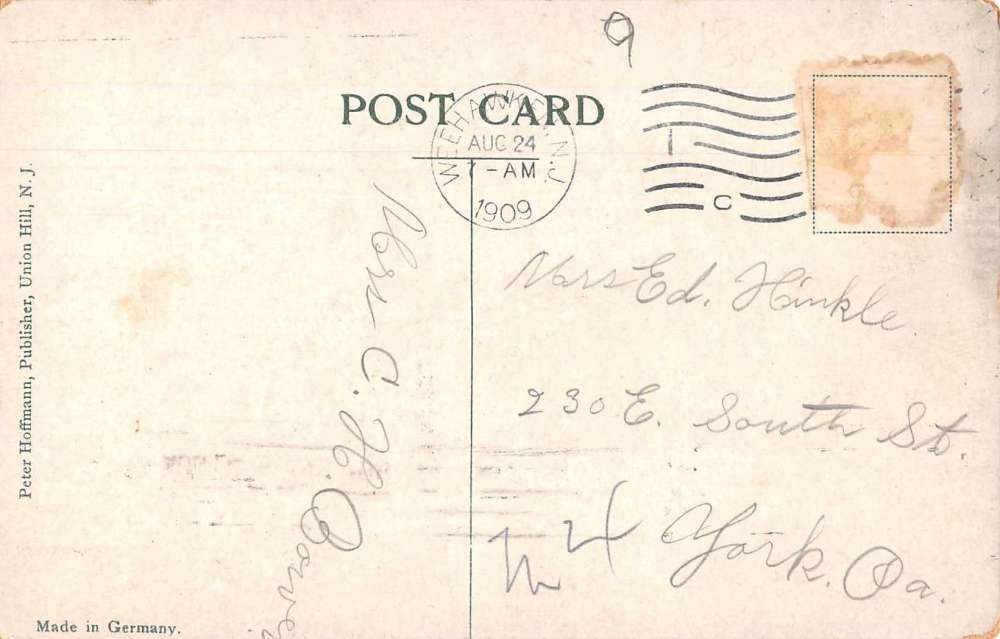 9
POST CARD
WEEHAWKEN, N.J.
AUG 24
7-AM
1909
1
C
Peter Hoffmann, Publisher, Union Hill, N. J.
C. H.
Mrs Ed. Hinkle
230 E. South St.
York. Pa.
Made in Germany.